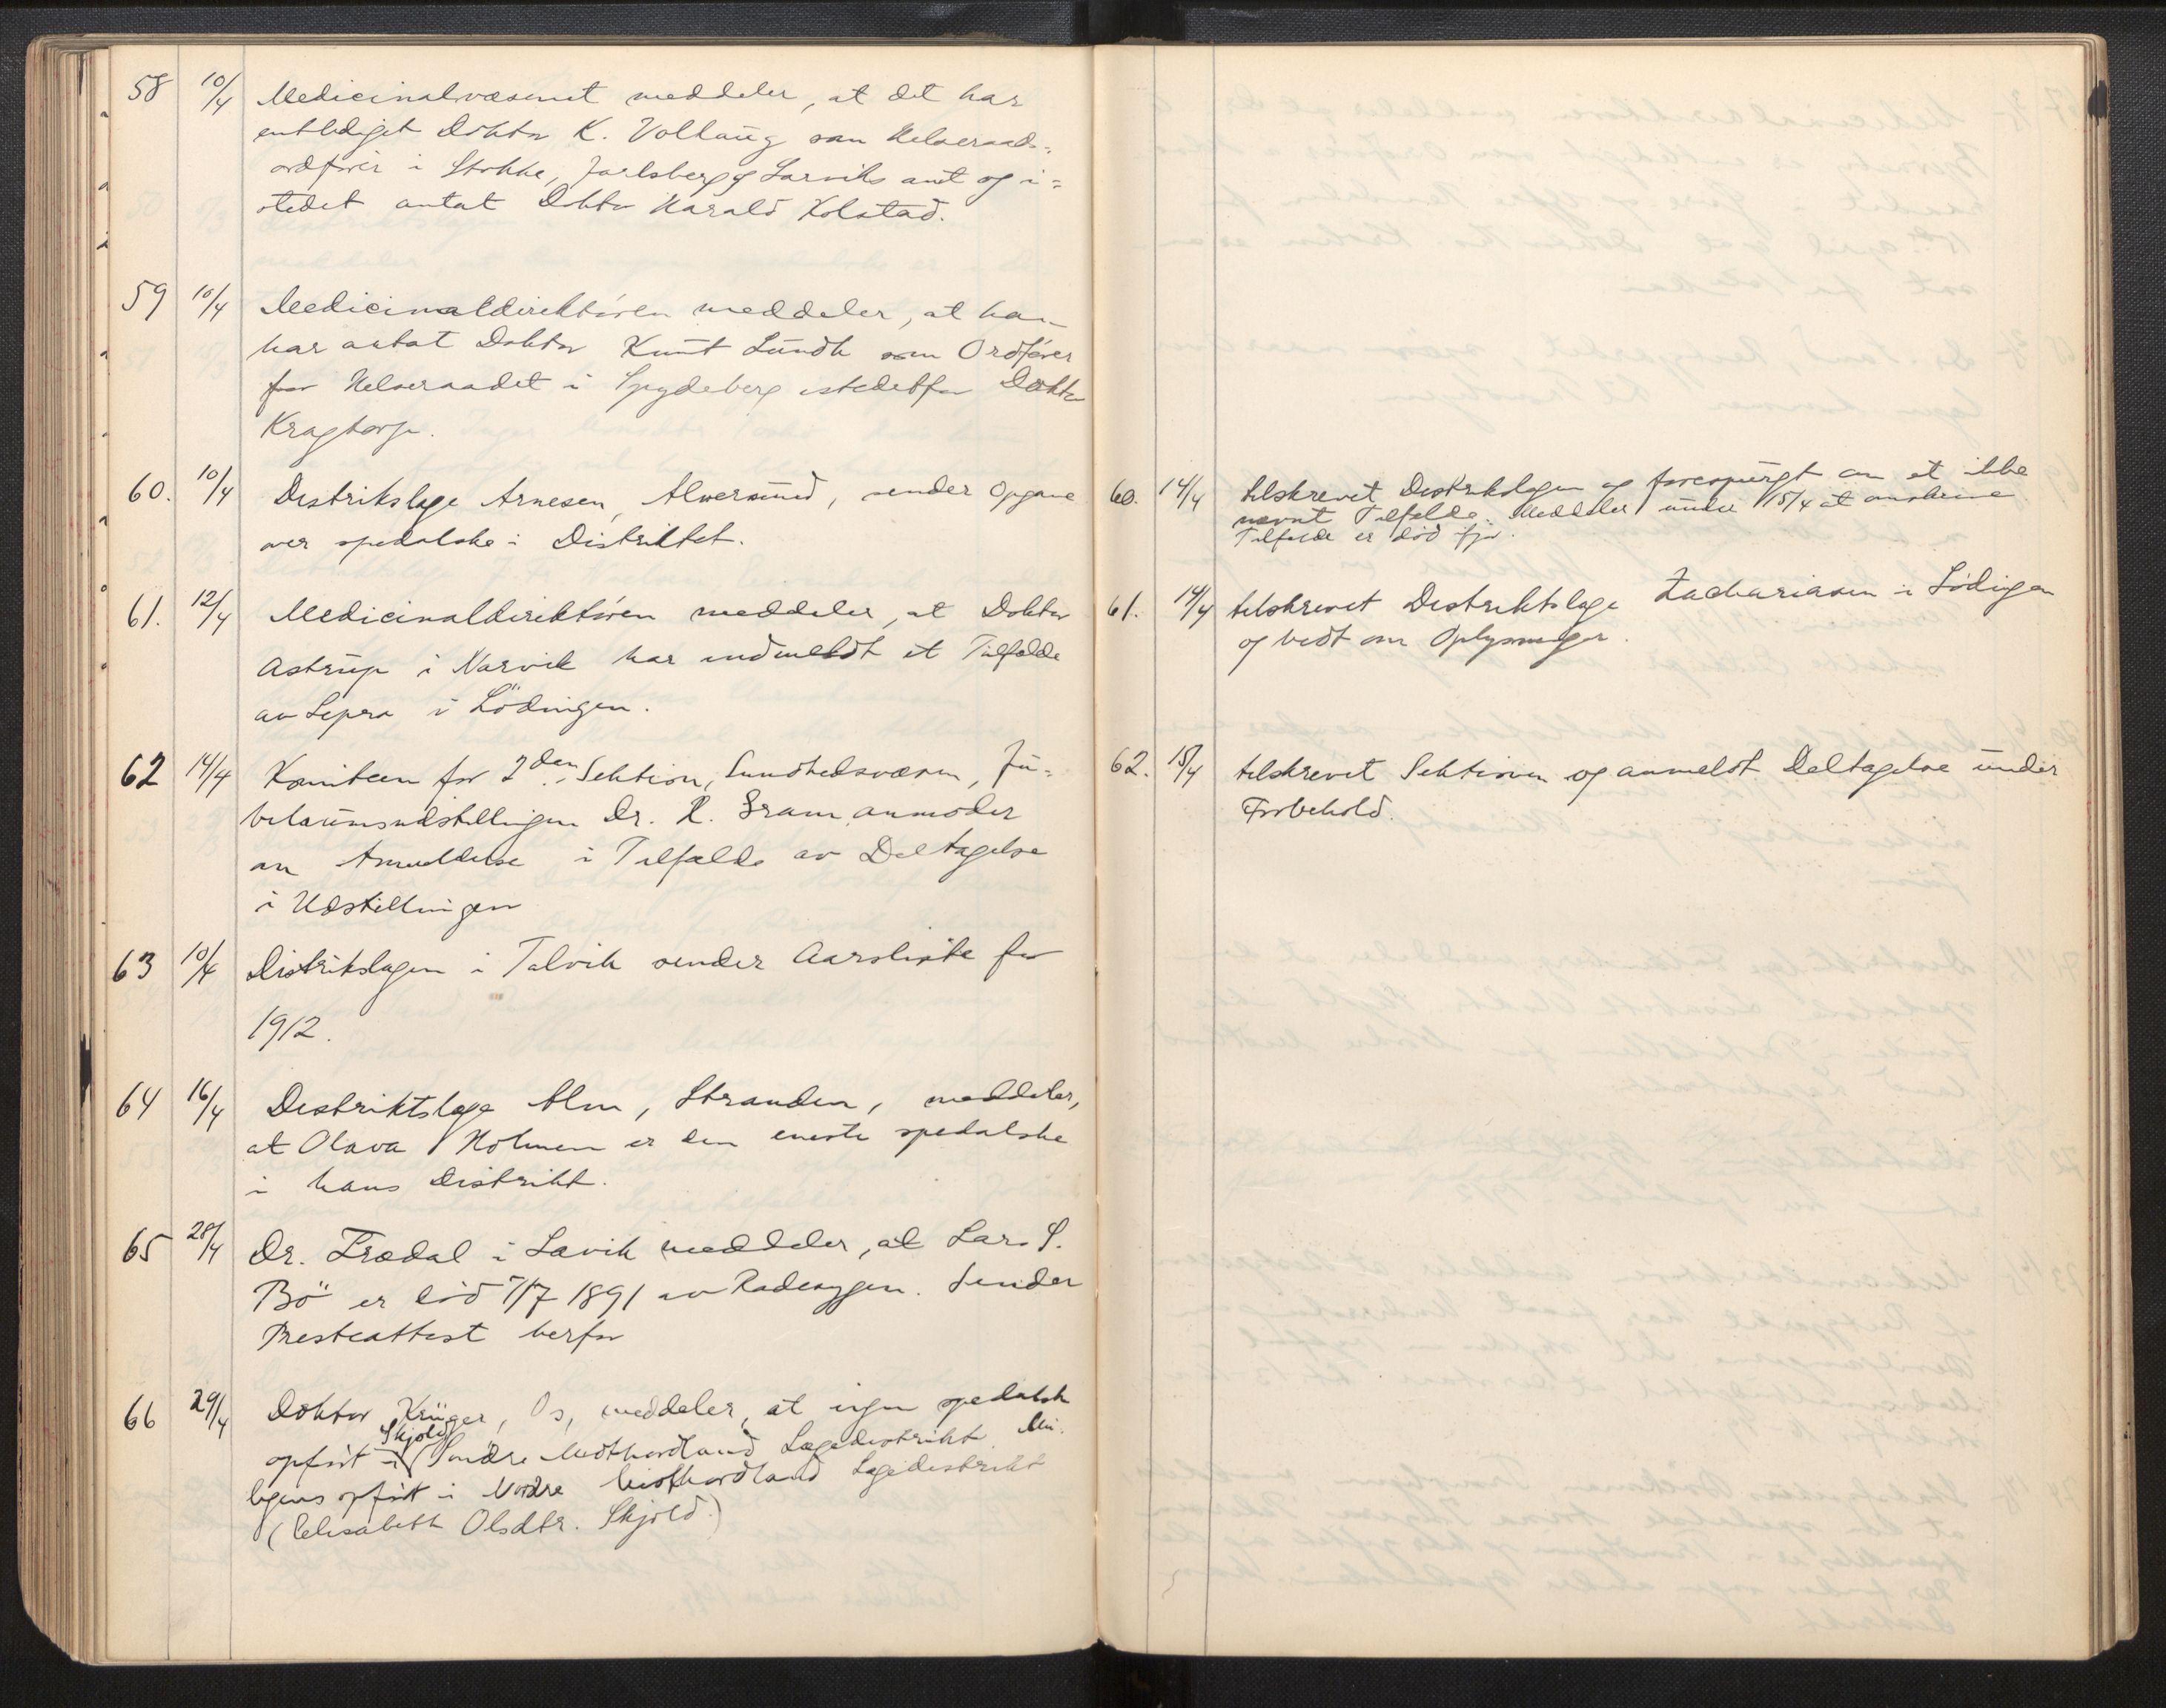 58 10/4 Medicinalvæsenet meddeler, at det har
entlediget Doktor K. Vollaug som Helseraads-
ordfører i Stokke, Jarlsberg og Larviks amt og i=
stedet antat Doktor Harald Kolstad.
59 10/4 Medicinaldirektøren meddeler, at han
har antat Doktor Knut Lundh som Ordfører
for Helseraadet i Spydeberg istedetfor Doktor
Kragtorp.
60. 10/4 Distrikslæge Arnesen, Alversund, sender Opgave
over spedalske i Distriktet.
61. 12/4 Medicinaldirektøren meddeler, at Doktor
Astrup i Narvik har indmeldt et Tilfælde
av Lepra i Lödingen.
62 14/4 Komiteen for 2den Sektion, Sundhedsvæsen, Ju=
bilæumsudstillingen Dr. R. Gram anmoder
om Anmeldelse i Tilfælde av Deltagelse
i Udstillingen
63 10/4 Distrikslægen i Talvik sender Aarsliste for
1912.
64 16/4 Distriktslæge Alm, Stranden, meddeler,
at Olava Holmen er den eneste spedalske
i hans Distrikt.
65 28/4 Dr. Trædal i Lavik meddeler, at Lars S.
Bö er död 7/7 1891 av Radesygen. Sender
Presteattest herfor
66 29/4 Doktor Krüger, Os, meddeler, at ingen spedalsk
opført i Skjold Søndre Midthordland Lægedistrikt. Mu-
ligens opført i Nordre Midthordland Lægedistrikt
(Elisabeth Olsdtr. Skjold.)
60. 14/4 tilskrevet Distriktslægen og forespurgt om et ikke
nævnt Tilfælde. Meddeler under 15/4 at omskrevne
Tilfælde er död ifjor.
61. 14/4 tilskrevet Distriktslæge Zachariasen i Lödigen
og bedt om Oplysninger.
62. 15/4 tilskrevet Sektionen og anmeldt Deltagelse under
Forbehold.